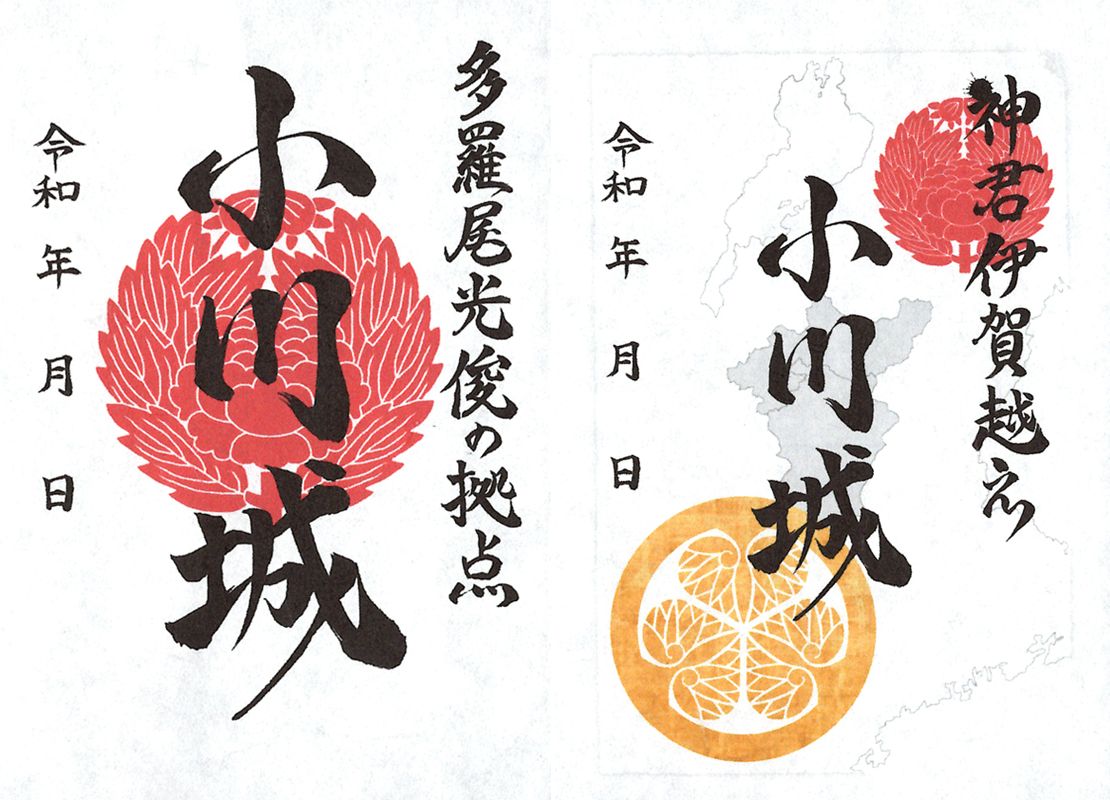 多羅尾光俊の拠点
小川城
令和 年 月 日
神君伊賀越え
小川城
令和 年 月 日